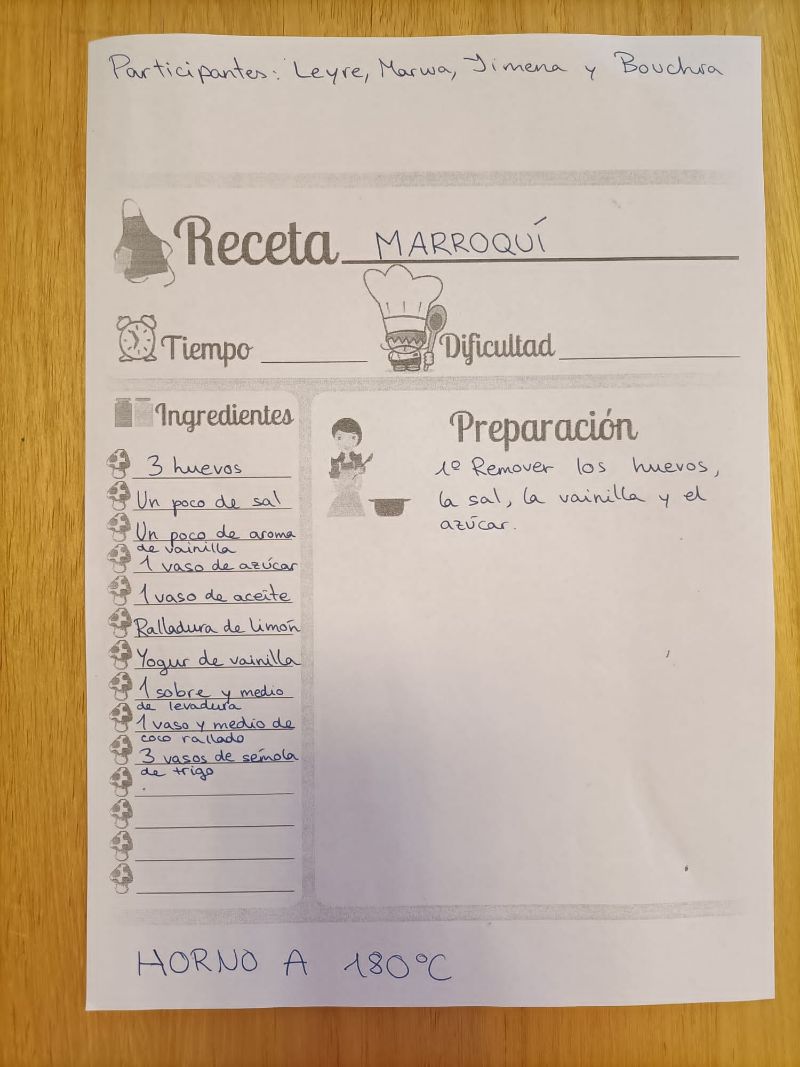 Participantes: Leyre, Marwa, Jimena y Bouchra
Receta MARROQUÍ
Tiempo
Dificultad
Ingredientes
3 huevos
Un poco de sal
Un poco de aroma
de vainilla
1 vaso de azúcar
1 vaso de aceite
Ralladura de limón
Yogur de vainilla
1 sobre y medio
de levadura
1 vaso y medio de
coco rallado
3 vasos de sémola
de trigo
Preparación
1º Remover los huevos,
la sal, la vainilla y el
azúcar.
HORNO A 180ºC